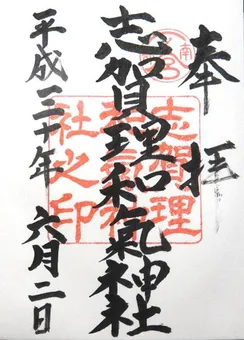 奉拝
志賀理和氣神社
平成三十年 六月二日
志賀理
社之印